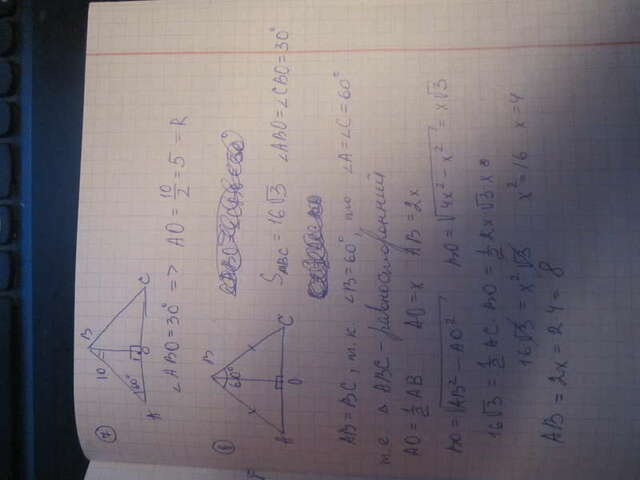 7
B
10
60°
A
O
C
∠ABO = 30° => AO = 10/2 = 5 = R
8
B
60°
A
O
C
S ABC = 16√3 ∠ABO = ∠CBO = 30°
AB = BC, т.к ∠B = 60°, то ∠A = ∠C = 60°
т.е △ ABC - равносторонний
AO = 1/2 AB AO = x AB = 2x
BO = √AB² - AO² BO = √4x² - x² = x√3
16√3 = 1/2 AC · BO = 1/2 2x √3 x
16√3 = x² √3 x² = 16 x = 4
AB = 2x = 2·4 = 8